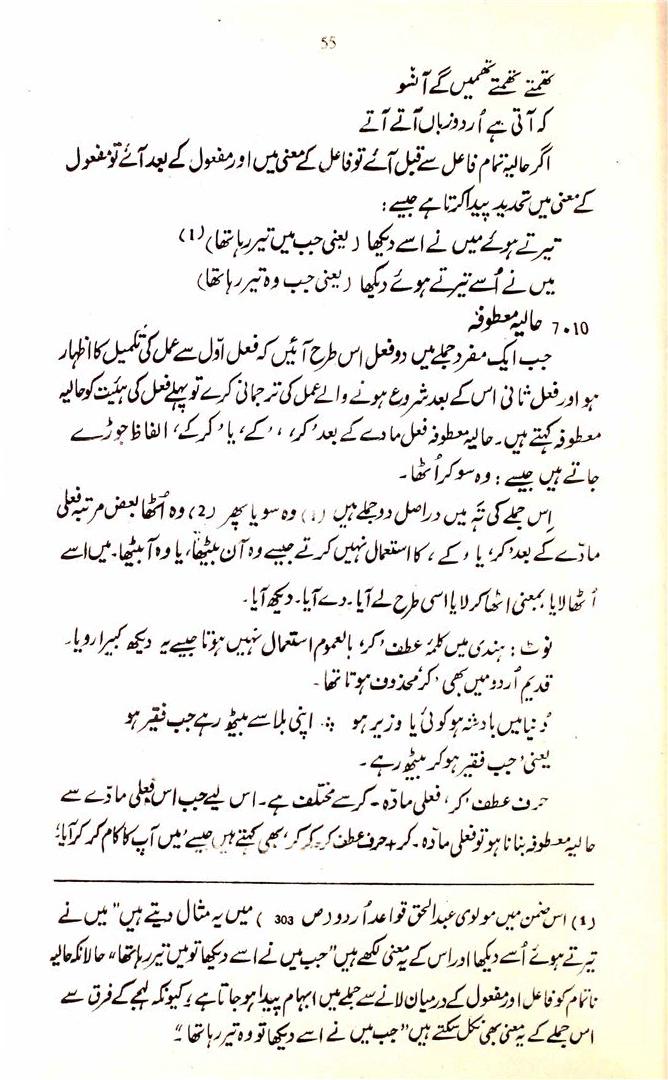 55
تھمتے تھمتے تھمیں گے آنسو
کہ آتی ہے اُردو زباں آتے آتے
اگر حالیہ تمام فاعل سے قبل آئے تو فاعل کے معنی میں اور مفعول کے بعد آئے تو مفعول
کے معنی میں تحدید پیدا کرتا ہے جیسے :
تیرتے ہوئے میں نے اسے دیکھا (یعنی جب میں تیر رہا تھا) (1)
میں نے اُسے تیرتے ہوئے دیکھا (یعنی جب وہ تیر رہا تھا)
7.10 حالیہ معطوفہ
جب ایک مفرد جملے میں دو فعل اس طرح آئیں کہ فعل اوّل سے عمل کی تکمیل کا اظہار
ہو اور فعل ثانی اس کے بعد شروع ہونے والے عمل کی ترجمانی کرے تو پہلے فعل کی ہئیت کو حالیہ
معطوفہ کہتے ہیں۔ حالیہ معطوفہ فعل مادے کے بعد ’کر‘، ’کے‘، یا ’کرکے‘، الفاظ جوڑے
جاتے ہیں جیسے : وہ سو کر اُٹھا۔
اس جملے کی تہہ میں دراصل دو جملے ہیں (1) وہ سویا پھر (2) وہ اُٹھا بعض مرتبہ فعلی
مادّے کے بعد ’کر‘ یا ’کے‘، کا استعمال نہیں کرتے جیسے وہ آن بیٹھا، یا وہ آ بیٹھا۔ میں اسے
اُٹھا لایا بمعنی اٹھا کر لایا اسی طرح لے آیا۔ دے آیا۔ دیکھ آیا۔
نوٹ : ہندی میں کلمۂ عطف ’کر‘ بالعموم استعمال نہیں ہوتا جیسے یہ دیکھ کبیرا رویا۔
قدیم اُردو میں بھی ’کر‘ محذوف ہوتا تھا۔
دُنیا میں بادشہ ہو کوئی یا وزیر ہو ؞ اپنی بلا سے بیٹھ رہے جب فقیر ہو
یعنی ’جب فقیر ہو کر بیٹھ رہے۔
حرف عطف ’کر‘، فعلی مادّہ ۔ کر سے مختلف ہے۔ اس لیے جب اس فعلی مادّے سے
حالیہ معطوفہ بنانا ہو تو فعلی مادّہ ۔ کر + حرف عطف کر ۔ کر کر‘ بھی کہتے ہیں جیسے ’میں آپ کا کام کر کر آیا‘؛
(1) اس ضمن میں مولوی عبدالحق قواعد اُردو (ص 303) میں یہ مثال دیتے ہیں "میں نے
تیرتے ہوئے اُسے دیکھا اور اس کے یہ معنی لکھے ہیں "جب میں نے اسے دیکھا تو میں تیر رہا تھا" حالانکہ حالیہ
ناتمام کو فاعل اور مفعول کے درمیان لانے سے جملے میں ابہام پیدا ہو جاتا ہے؛ کیونکہ لہجے کے فرق سے
اس جملے کے یہ معنی بھی نکل سکتے ہیں "جب میں نے اسے دیکھا تو وہ تیر رہا تھا۔"